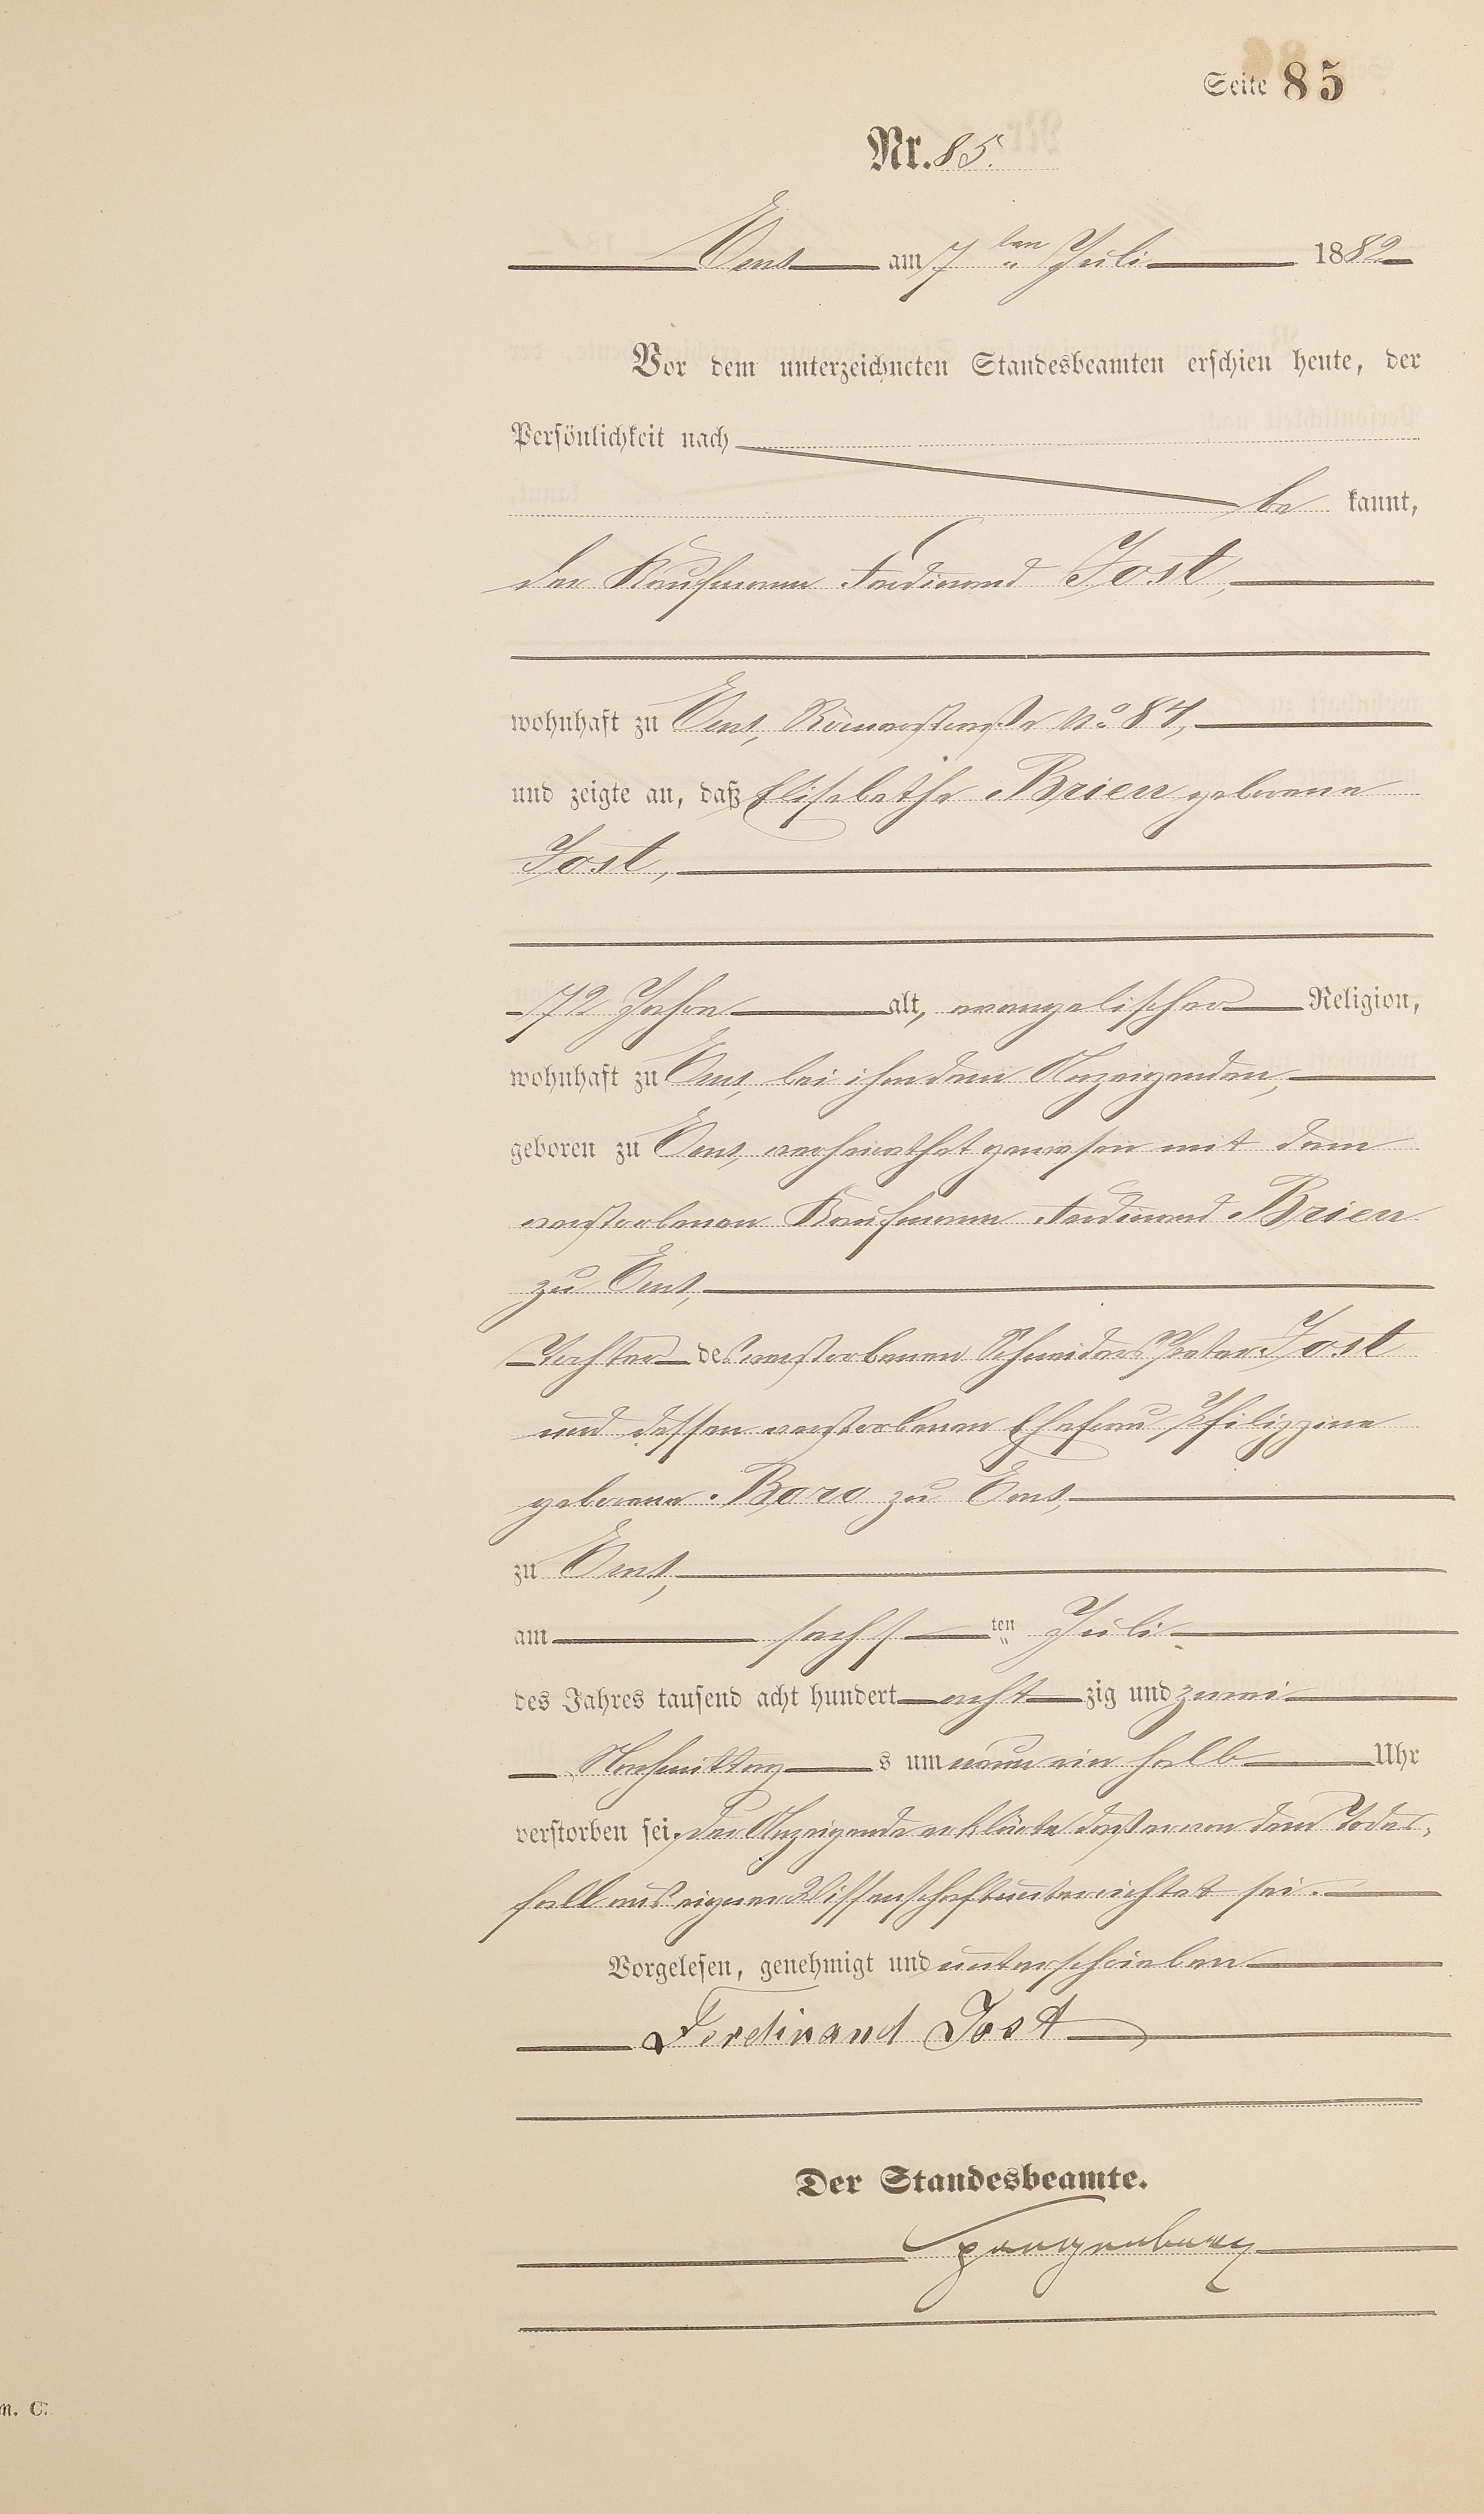 Seite 85
Nr. 85.
Ems am 7 ten Juli 1882
Vor dem unterzeichneten Standesbeamten erschien heute, der
Persönlichkeit nach
be kannt,
der Kaufmann Ferdinand Jost,
wohnhaft zu Ems, Römerstraße No. 87,
und zeigte an, daß Elisabetha Brien geborene
Jost,
72 Jahre alt, evangelischer Religion,
wohnhaft zu Ems, bei ihm dem Anzeigenden,
geboren zu Ems, verheirathet gewesen mit dem
verstorbenen Kaufmann Ferdinand Brien
zu Ems,
Tochter des verstorbenen Schneiders Peter Jost
und dessen verstorbenen Ehefrau Philippine
geborene Boro zu Ems,
zu Ems,
am sechsten Juli
des Jahres tausend acht hundert acht zig und zwei
Nachmittag s um neun ein halb Uhr
verstorben sei. Der Anzeigende erklärte daß er von dem Todes-
fall aus eigener Wissenschaft unterrichtet sei.
Vorgelesen, genehmigt und unterschrieben
Ferdinand Jost
Der Standesbeamte.
Spangenberg
m. C.